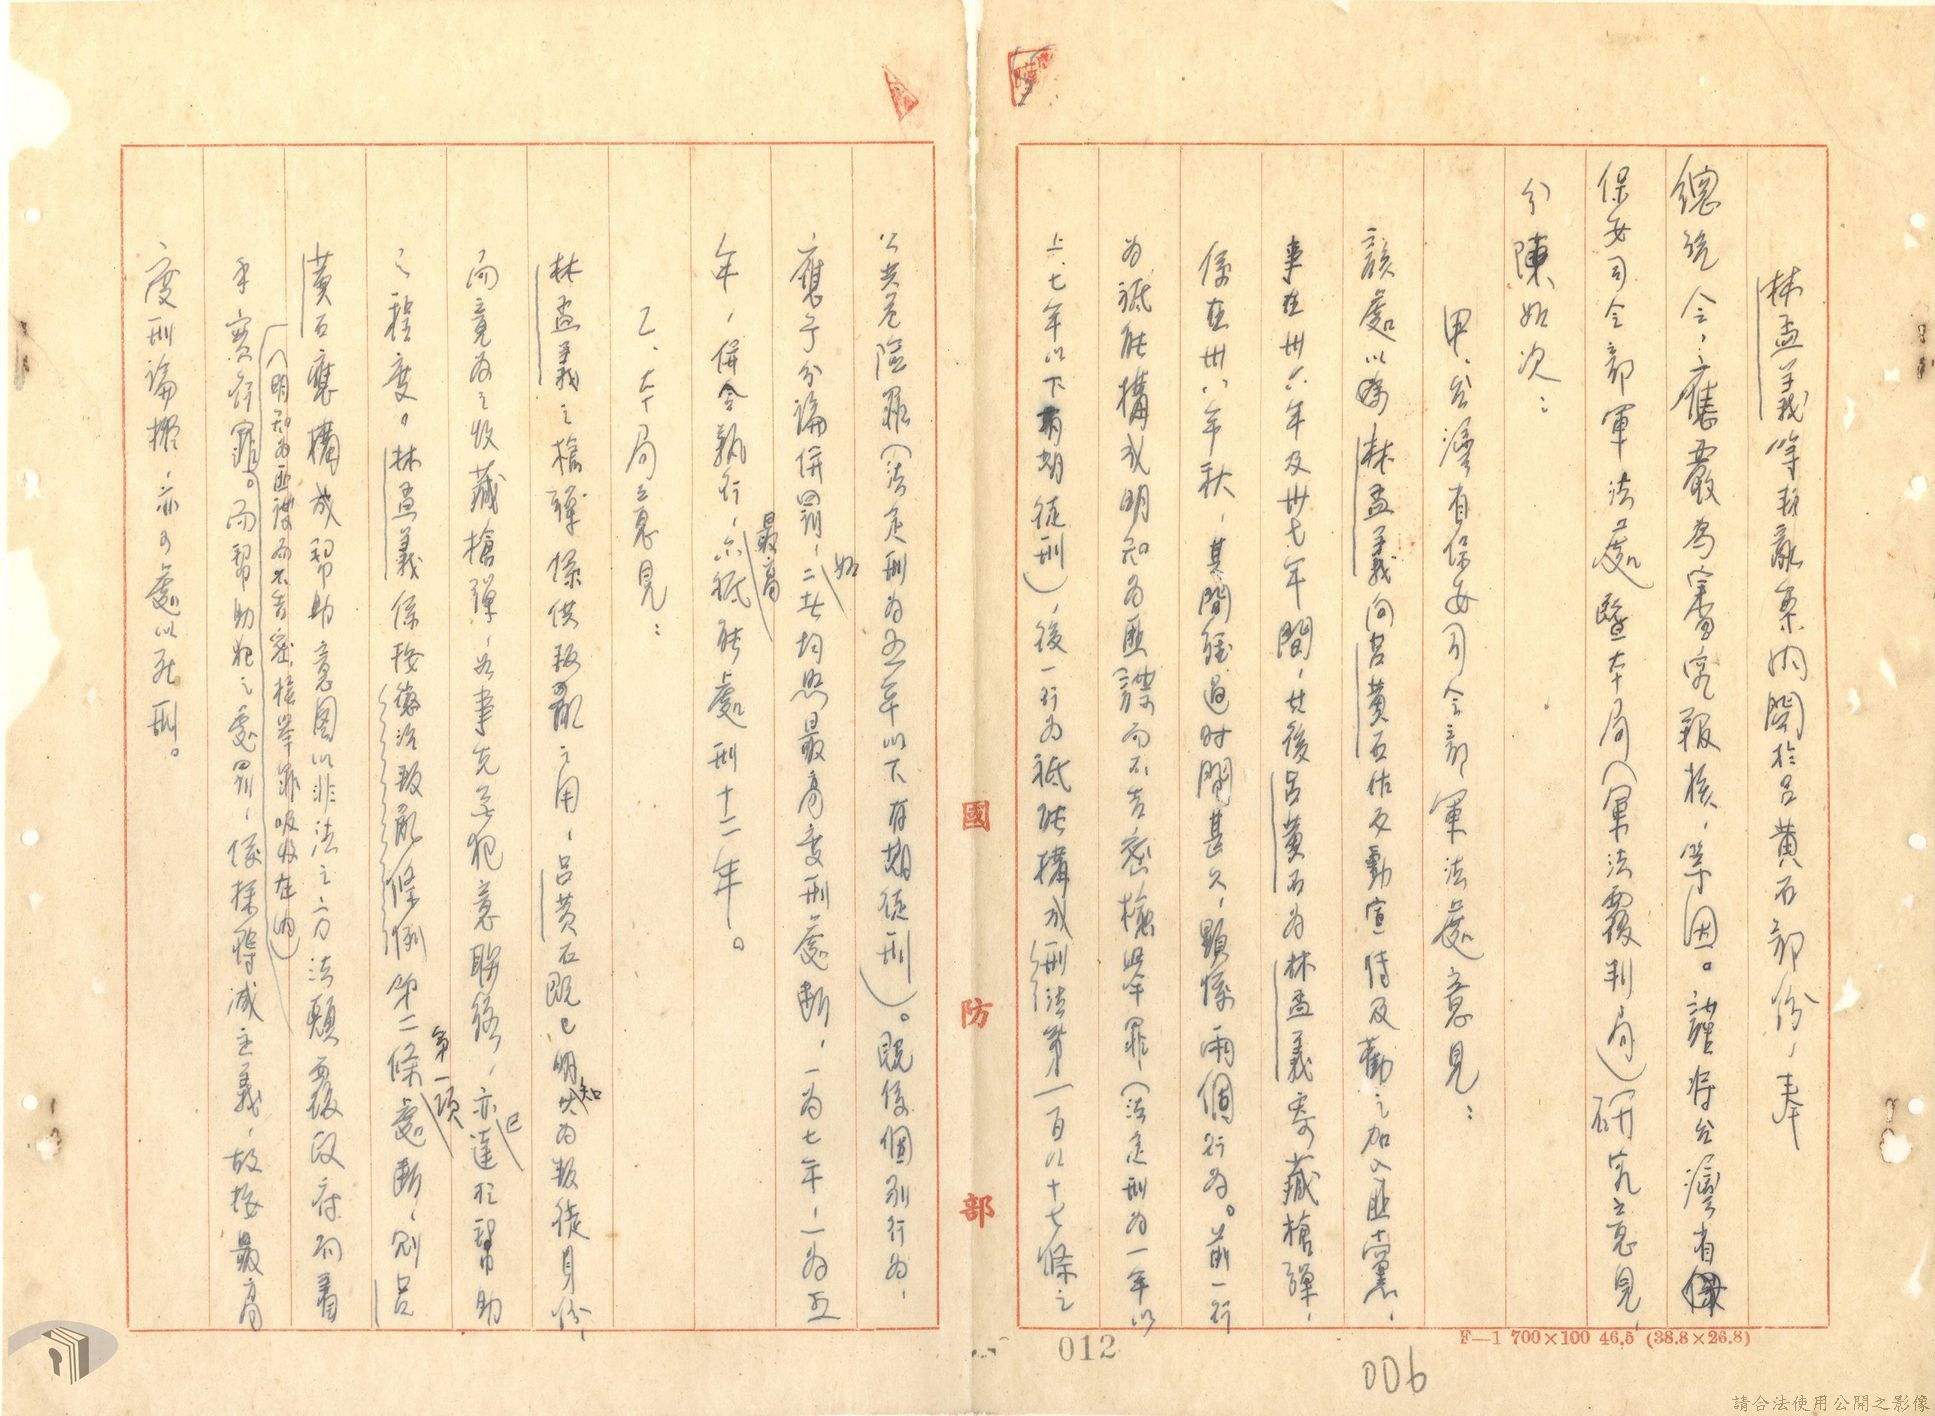 林孟義等叛亂案內關於呂黃石部份，奉
總統令：應嚴為審究報核，等因。謹將台灣省
保安司令部軍法處暨本局（軍法覆判局）研究意見，
分陳如次：
甲、台灣省保安司令部軍法處意見：
該處以為林孟義向呂黃石作反動宣傳及勸之加入匪黨，
事在卅六年及卅七年間，其後呂黃石為林孟義寄藏槍彈，
係在卅八年秋，其間經過時間甚久，顯係兩個行為。前一行
為祇能構成明知為匪諜而不告密檢舉罪（法定刑為一年以
上、七年以下有期徒刑），後一行為祇能構成刑法第一百八十七條之
公共危險罪（法定刑為五年以下有期徒刑）。既係個別行為，
應予分論併罰，如二者均照最高度刑處斷，一為七年，一為五
年，併合執行，最高亦祇能處刑十二年。
乙、本局意見：
林孟義之槍彈係供叛亂之用，呂黃石既已明知其為叛徒身份，
而竟為之收藏槍彈，如事先有犯意聯絡，亦已達於幫助
之程度。林孟義係按懲治叛亂條例第二條第一項處斷，則呂
黃石應構成幫助意圖以非法之方法顛覆政府而着
手實行罪。（明知為匪諜而不告密檢舉罪吸收在內）而幫助犯之處罰，係採得減主義，故按最高
度刑論擬，亦可處以死刑。
國防部
F—1 700×100 46.5 (38.8×26.8)
012
006
請合法使用公開之影像